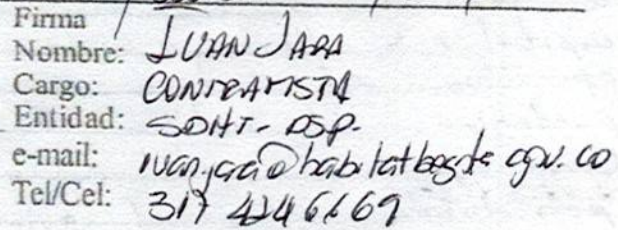 Firma
Nombre: IVAN JARA
Cargo: CONTRATISTA
Entidad: SDHT- DSP.
e-mail: ivan.jara@habitatbogota.gov.co
Tel/Cel: 317 4246669